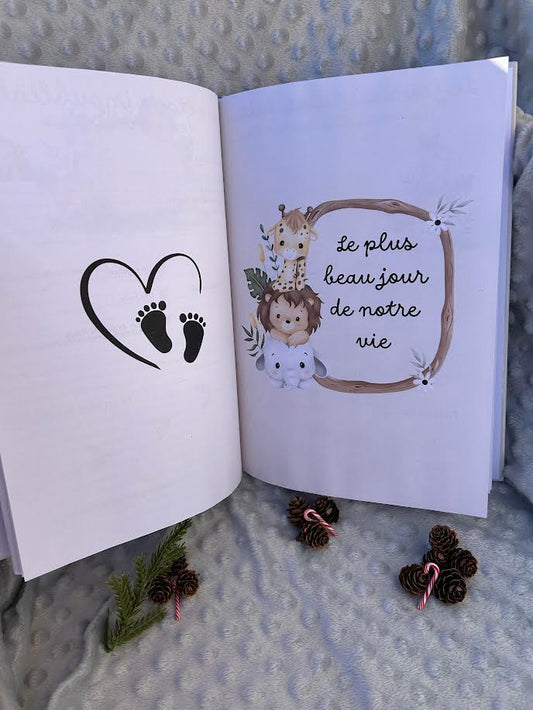 Le plus
beau jour
de notre
vie